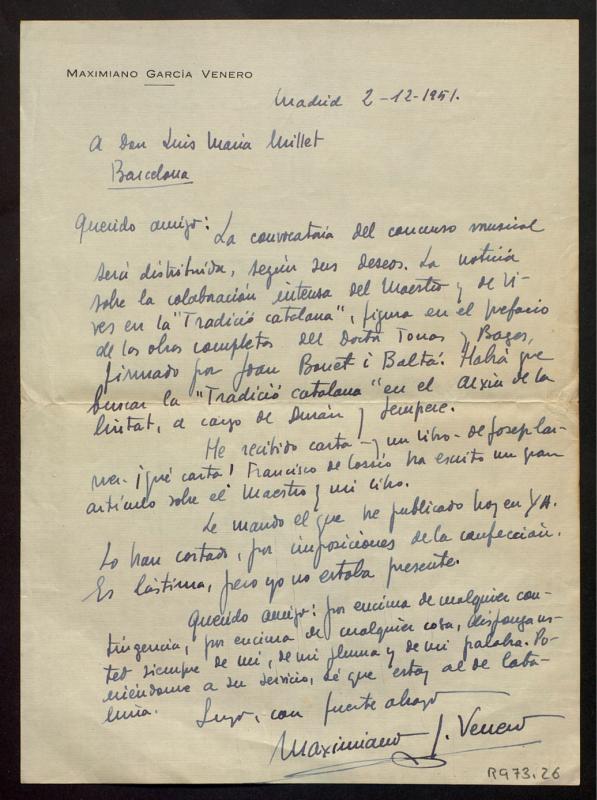 MAXIMIANO GARCÍA VENERO
Madrid 2-12-1951.
A Don Luis María Millet
Barcelona
Querido amigo: La convocatoria del concurso musical
será distribuída, según sus deseos. La noticia
sobre la colaboración intensa del Maestro y de Vi-
ves en la "Tradició catalana", figura en el prefacio
de las obras completas del Doctor Torras y Bages,
firmado por Joan Bonet i Baltá. Habrá que
buscar la "Tradició catalana" en el arxiu de la
Ciutat, a cargo de Durán y Sempere.
He recibido carta - y un libro - de Josep Car-
ner. ¡Qué carta! Francisco de Cossío ha escrito un gran
artículo sobre el Maestro y mi libro.
Le mando el que he publicado hoy en YA.
Lo han cortado, por imposiciones de la confección.
Es lástima, pero yo no estaba presente.
Querido amigo: por encima de cualquier con-
tingencia, por encima de cualquier cosa, disponga us-
ted siempre de mí, de mi pluma y de mi palabra. Po-
niéndome a su servicio, sé que estoy al de Cata-
luña.
Suyo, con fuerte abrazo
Maximiano G. Venero
R973.26